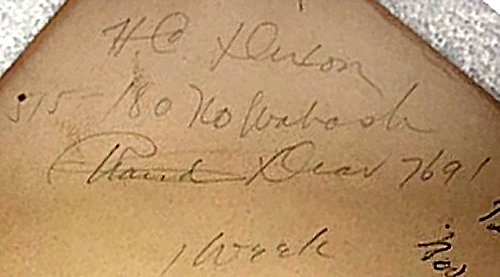 H.C. Dixon
515-180 No Wabash
Dear 7691
1 Week